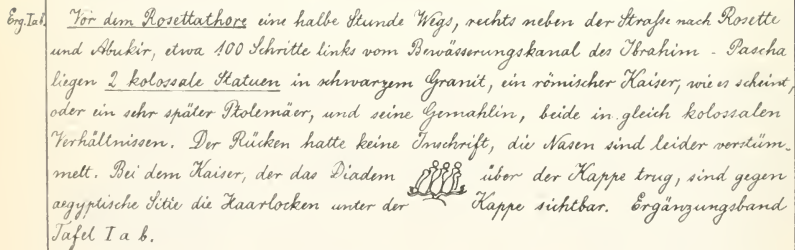 Erg. Iab. Vor dem Rosettathore eine halbe Stunde Wegs, rechts neben der Straſse nach Rosette
und Abukir, etwa 100 Schritte links vom Bewässerungskanal des Ibrahim - Pascha
liegen 2 kolossale Statuen in schwarzem Granit, ein römischer Kaiser, wie es scheint,
oder ein sehr später Ptolemäer, und seine Gemahlin, beide in gleich kolossalen
Verhältnissen. Der Rücken hatte keine Inschrift, die Nasen sind leider verstüm-
melt. Bei dem Kaiser, der das Diadem über der Kappe trug, sind gegen
aegyptische Sitte die Haarlocken unter der Kappe sichtbar. Ergänzungsband
Tafel I a b.